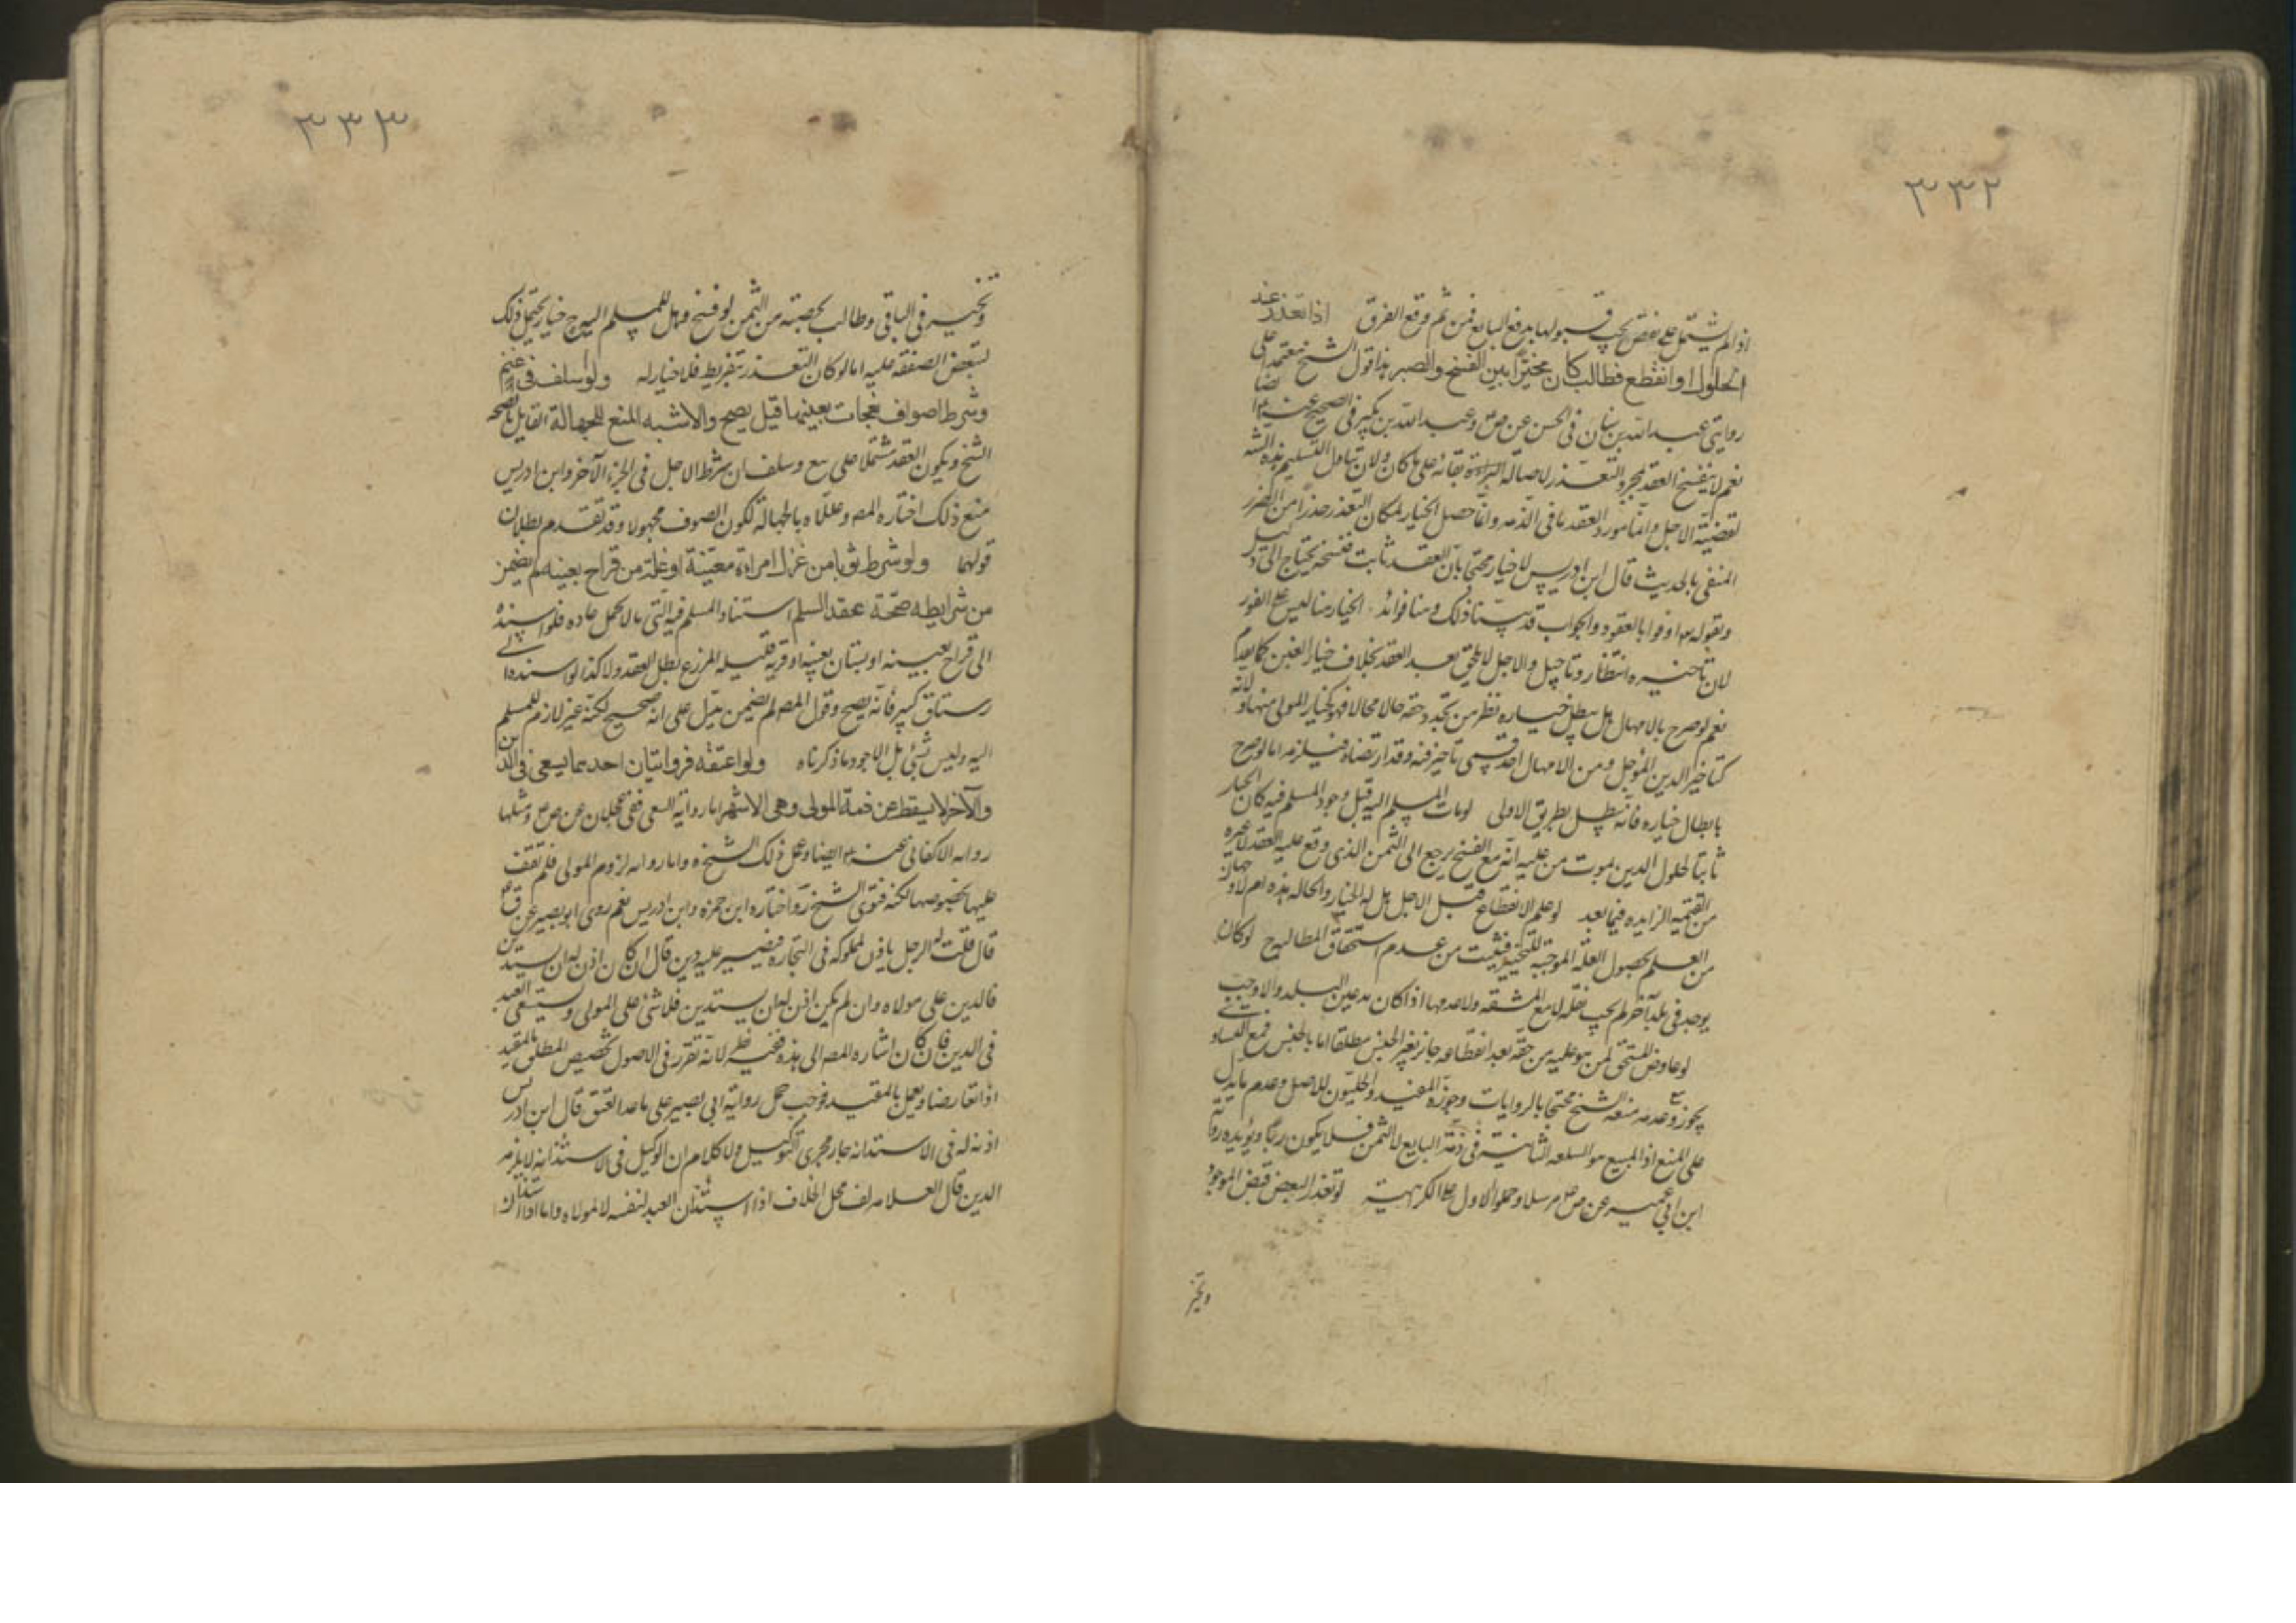 ٣٣٢
اذا لم يشتمل على نقص يجب قبولها بدفع البايع فمن ثم وقع الفرق اذا تعذر عند
الحلول او انقطع فطالب كان مخيرا بين الفسخ والصبر هذا قول الشيخ معتمدا على
روايتى عبد الله بن سنان فى الحسن عن ص وعبد الله بن بكير فى الصحيح عنه ايضا
نعم لا ينفسخ العقد بمجرد التعذر لاصالة البراءة بقائه على ما كان ولان تناول التسليم هذه السنة
لقضية الاجل وانما مورد العقد ما فى الذمه وانما حصل الخيار لمكان التعذر حذرا من الضرر
المنفى بالحديث قال ابن ادريس لا خيار محتجا بان العقد ثابت ففسخه يحتاج الى دليل
وبقوله اوفوا بالعقود والجواب قد بينا ذلك وهنا فوائد الخيار هنا ليس على الفور
لان تاخيره انتظار وتاجيل والاجل لا يلحق بعد العقد بخلاف خيار الغبن كما تقدم
نعم لو صرح بالامهال هل يبطل خياره نظر من تجدد حقه حالا فحالا فهو كخيار المولى منها ولانه
كتاخير الدين المؤجل ومن ان الامهال احد قسمى تاخير فيه وقد ارتضاه فيلزمه اما لو صرح
بابطال خياره فانه يبطل بطريق الاولى لو مات المسلم اليه قبل وجود المسلم فيه كان الخيار
ثابتا لحلول الدين بموت من عليه انه مع الفسخ يرجع الى الثمن الذى وقع عليه العقد
من القيمة الزايده فيما بعد لو علم الانقطاع قبل الاجل هل له الخيار والحاله هذه ام لا
من العلم بحصول العلة الموجبة للتخيير فيثبت من عدم استحقاق المطالبه ح لو كان
يوجد فى بلد آخر لم يجب نقله لا مع المشقه ولا عدمها اذا كان مدعين البلد والا وجب
لو عاوض المستحق لمن هو عليه من حقه بعد انقطاعه جاز بغير الجنس مطلقا اما بالجنس فمع التساوى
يجوز وعدمه منعه الشيخ محتجا بالروايات وجوزه المفيد والحليون للاصل وعدم ما يدل
على المنع اذ المبيع هو السلعه الثابته فى ذمة البايع لا الثمن فلا يكون ربا ويؤيده رواية
ابن ابى عمير عن ص مرسلا وحملوا الاول على الكراهية لو تعذر البعض قبض الموجود
وتخير
٣٣٣
وتخير فى الباقى وطالب بحصته من الثمن لو فسخ وهل للمسلم اليه ح خيار يحتمل ذلك
لتبعض الصفقه عليه اما لو كان التعذر بتفريطه فلا خيار له ولو اسلف فى غنم
وشرط اصواف نعجات بعينها قيل يصح والاشبه المنع للجهالة القايل بالصحه
الشيخ ويكون العقد مشتملا على بيع وسلف ان شرط الاجل فى الجزء الآخر وابن ادريس
منع ذلك اختاره المص وعللاه بالجهالة لكون الصوف مجهولا وقد تقدم بطلان
قولهما ولو شرط ثوبا من غزل امراة معينة او غلة من قراح بعينه لم يضمن
من شرايطه صحة عقد السلم استناد المسلم فيه الى ما لا يحمل عاده فلو اسنده
الى قراح بعينه او بستان بعينه او قرية قليلة المزرع بطل العقد ولا كذا لو اسنده الى
رستاق كبير فانه يصح وقول المص لم يضمن يدل على انه صحيح لكنه غير لازم للمسلم
اليه وليس بشئ بل الاجود ما ذكرناه ولو اعتقه فروايتان احدهما يسعى فى الدين
والآخر لا يسقط عن ذمة المولى وهى الاشهر اما رواية السعى ففى عجلان عن ص ومثلها
روايه الاكفانى عنه ايضا وعمل ذلك الشيخ ره واما روايه لزوم المولى فلم نقف
عليها بخصوصها لكنه فتوى الشيخ ره واختاره ابن حمزه وابن ادريس نعم روى ابو بصير عن ق
قال قلت له الرجل ياذن لمملوكه فى التجارة فيصير عليه دين قال ان كان اذن له ان يستدين
فالدين على مولاه وان لم يكن اذن له ان يستدين فلا شئ على المولى ويستسعى العبد
فى الدين فان كان اشاره المص الى هذه ففيه نظر لانه تقرر فى الاصول تخصيص المطلق بالمقيد
اذا تعارضا ويعمل بالمقيد فوجب حمل رواية ابى بصير على ما عدا العتق قال ابن ادريس
اذنه له فى الاستدانه جار مجرى التوكيل ولا كلام ان الوكيل فى الاستدانه لا يلزمه
الدين قال العلامه لف محل الخلاف اذا استدان العبد لنفسه لا لمولاه واما اذا استدان